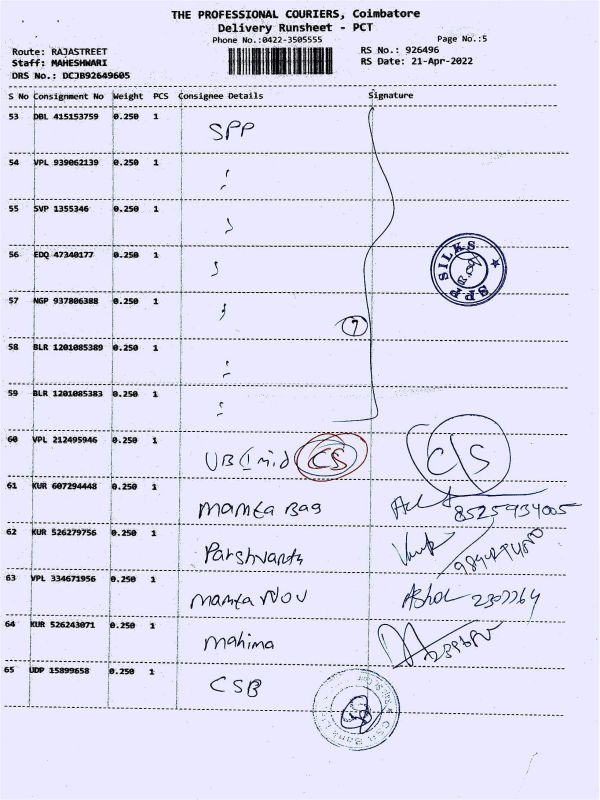 THE PROFESSIONAL COURIERS, Coimbatore
Delivery Runsheet - PCT
Phone No.:0422-3505555
Page No.:5
Route: RAJASTREET
RS No.: 926496
Staff: MAHESHWARI
RS Date: 21-Apr-2022
DRS No.: DCJB92649605
S No Consignment No Weight PCS Consignee Details Signature
53 DBL 415153759 0.250 1 SPP
54 VPL 939062139 0.250 1 "
55 SVP 1355346 0.250 1
56 EDQ 47340177 0.250 1
57 NGP 937806388 0.250 1
7
58 BLR 1201085389 0.250 1 "
59 BLR 1201085383 0.250 1 "
SPP SILKS
60 VPL 212495946 0.250 1 UB CS C/S
61 KUR 607294448 0.250 1 Mamta Bag 8525934005
62 KUR 526279756 0.250 1 Parshvanth
63 VPL 334671956 0.250 1 Mamta Nov
64 KUR 526243071 0.250 1 Mahima
65 UDP 15899658 0.250 1 CSB